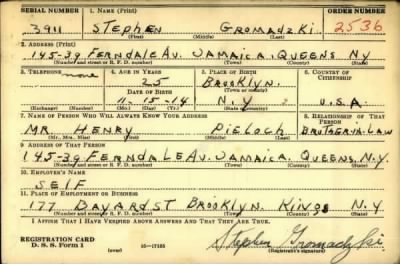 SERIAL NUMBER 1. NAME (Print) ORDER NUMBER
3911 STEPHEN GROMADZKI 2536
(First) (Middle) (Last)
2. ADDRESS (Print)
145-39 FERNDALE AV. JAMAICA, QUEENS NY
(Number and street or R. F. D. number) (Town) (County) (State)
3. TELEPHONE 4. AGE IN YEARS 5. PLACE OF BIRTH 6. COUNTRY OF CITIZENSHIP
none 25 BROOKLYN
DATE OF BIRTH (Town or county)
11-15-14 N.Y U.S.A.
(Exchange) (Number) (Mo.) (Day) (Yr.) (State or country)
7. NAME OF PERSON WHO WILL ALWAYS KNOW YOUR ADDRESS 8. RELATIONSHIP OF THAT PERSON
MR. HENRY PIELOCH BROTHER-IN-LAW
(Mr., Mrs., Miss) (First) (Middle) (Last)
9. ADDRESS OF THAT PERSON
145-39 FERNDALE AV. JAMAICA, QUEENS, N.Y.
(Number and street or R. F. D. number) (Town) (County) (State)
10. EMPLOYER'S NAME
SELF
11. PLACE OF EMPLOYMENT OR BUSINESS
177 BAYARD ST BROOKLYN KINGS N.Y
(Number and street or R. F. D. number) (Town) (County) (State)
I AFFIRM THAT I HAVE VERIFIED ABOVE ANSWERS AND THAT THEY ARE TRUE.
REGISTRATION CARD
D. S. S. Form 1 (over) 16-17105 Stephen Gromadzki
(Registrant's signature)